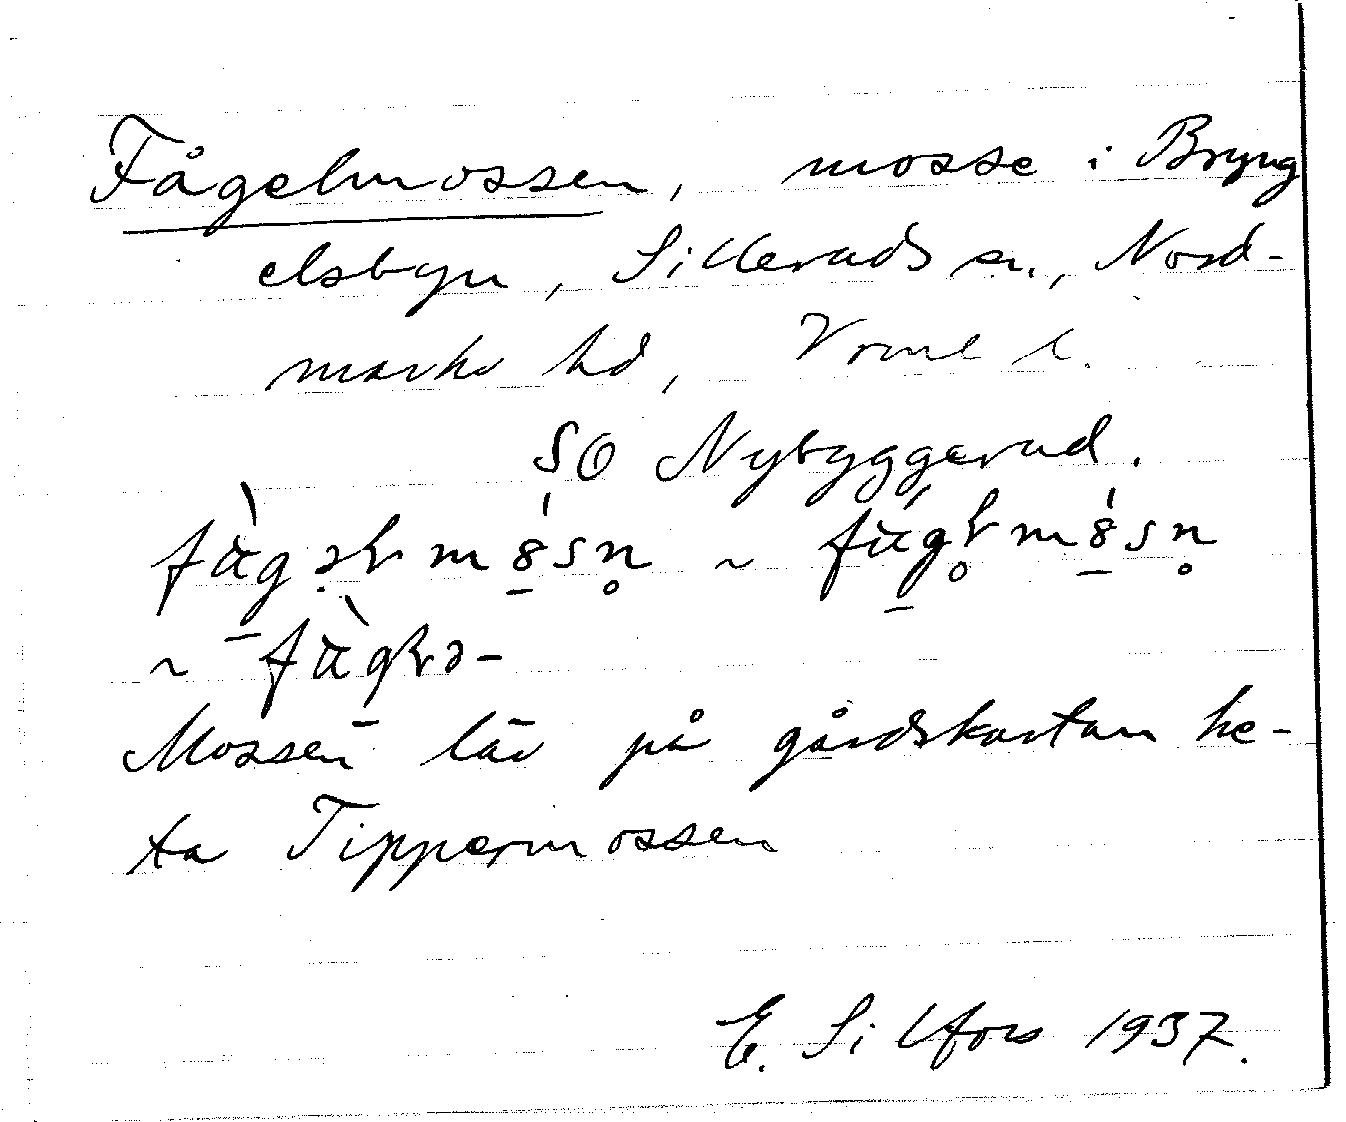 Fågelmossen, mosse i Bryng
elsbyn, Silleruds sn., Nord-
marks hd, Vrml l.
SO Nybyggerud.
~
~
Mossen lär på gårdskartan he-
ta Tippermossen
E. Silfors 1937.